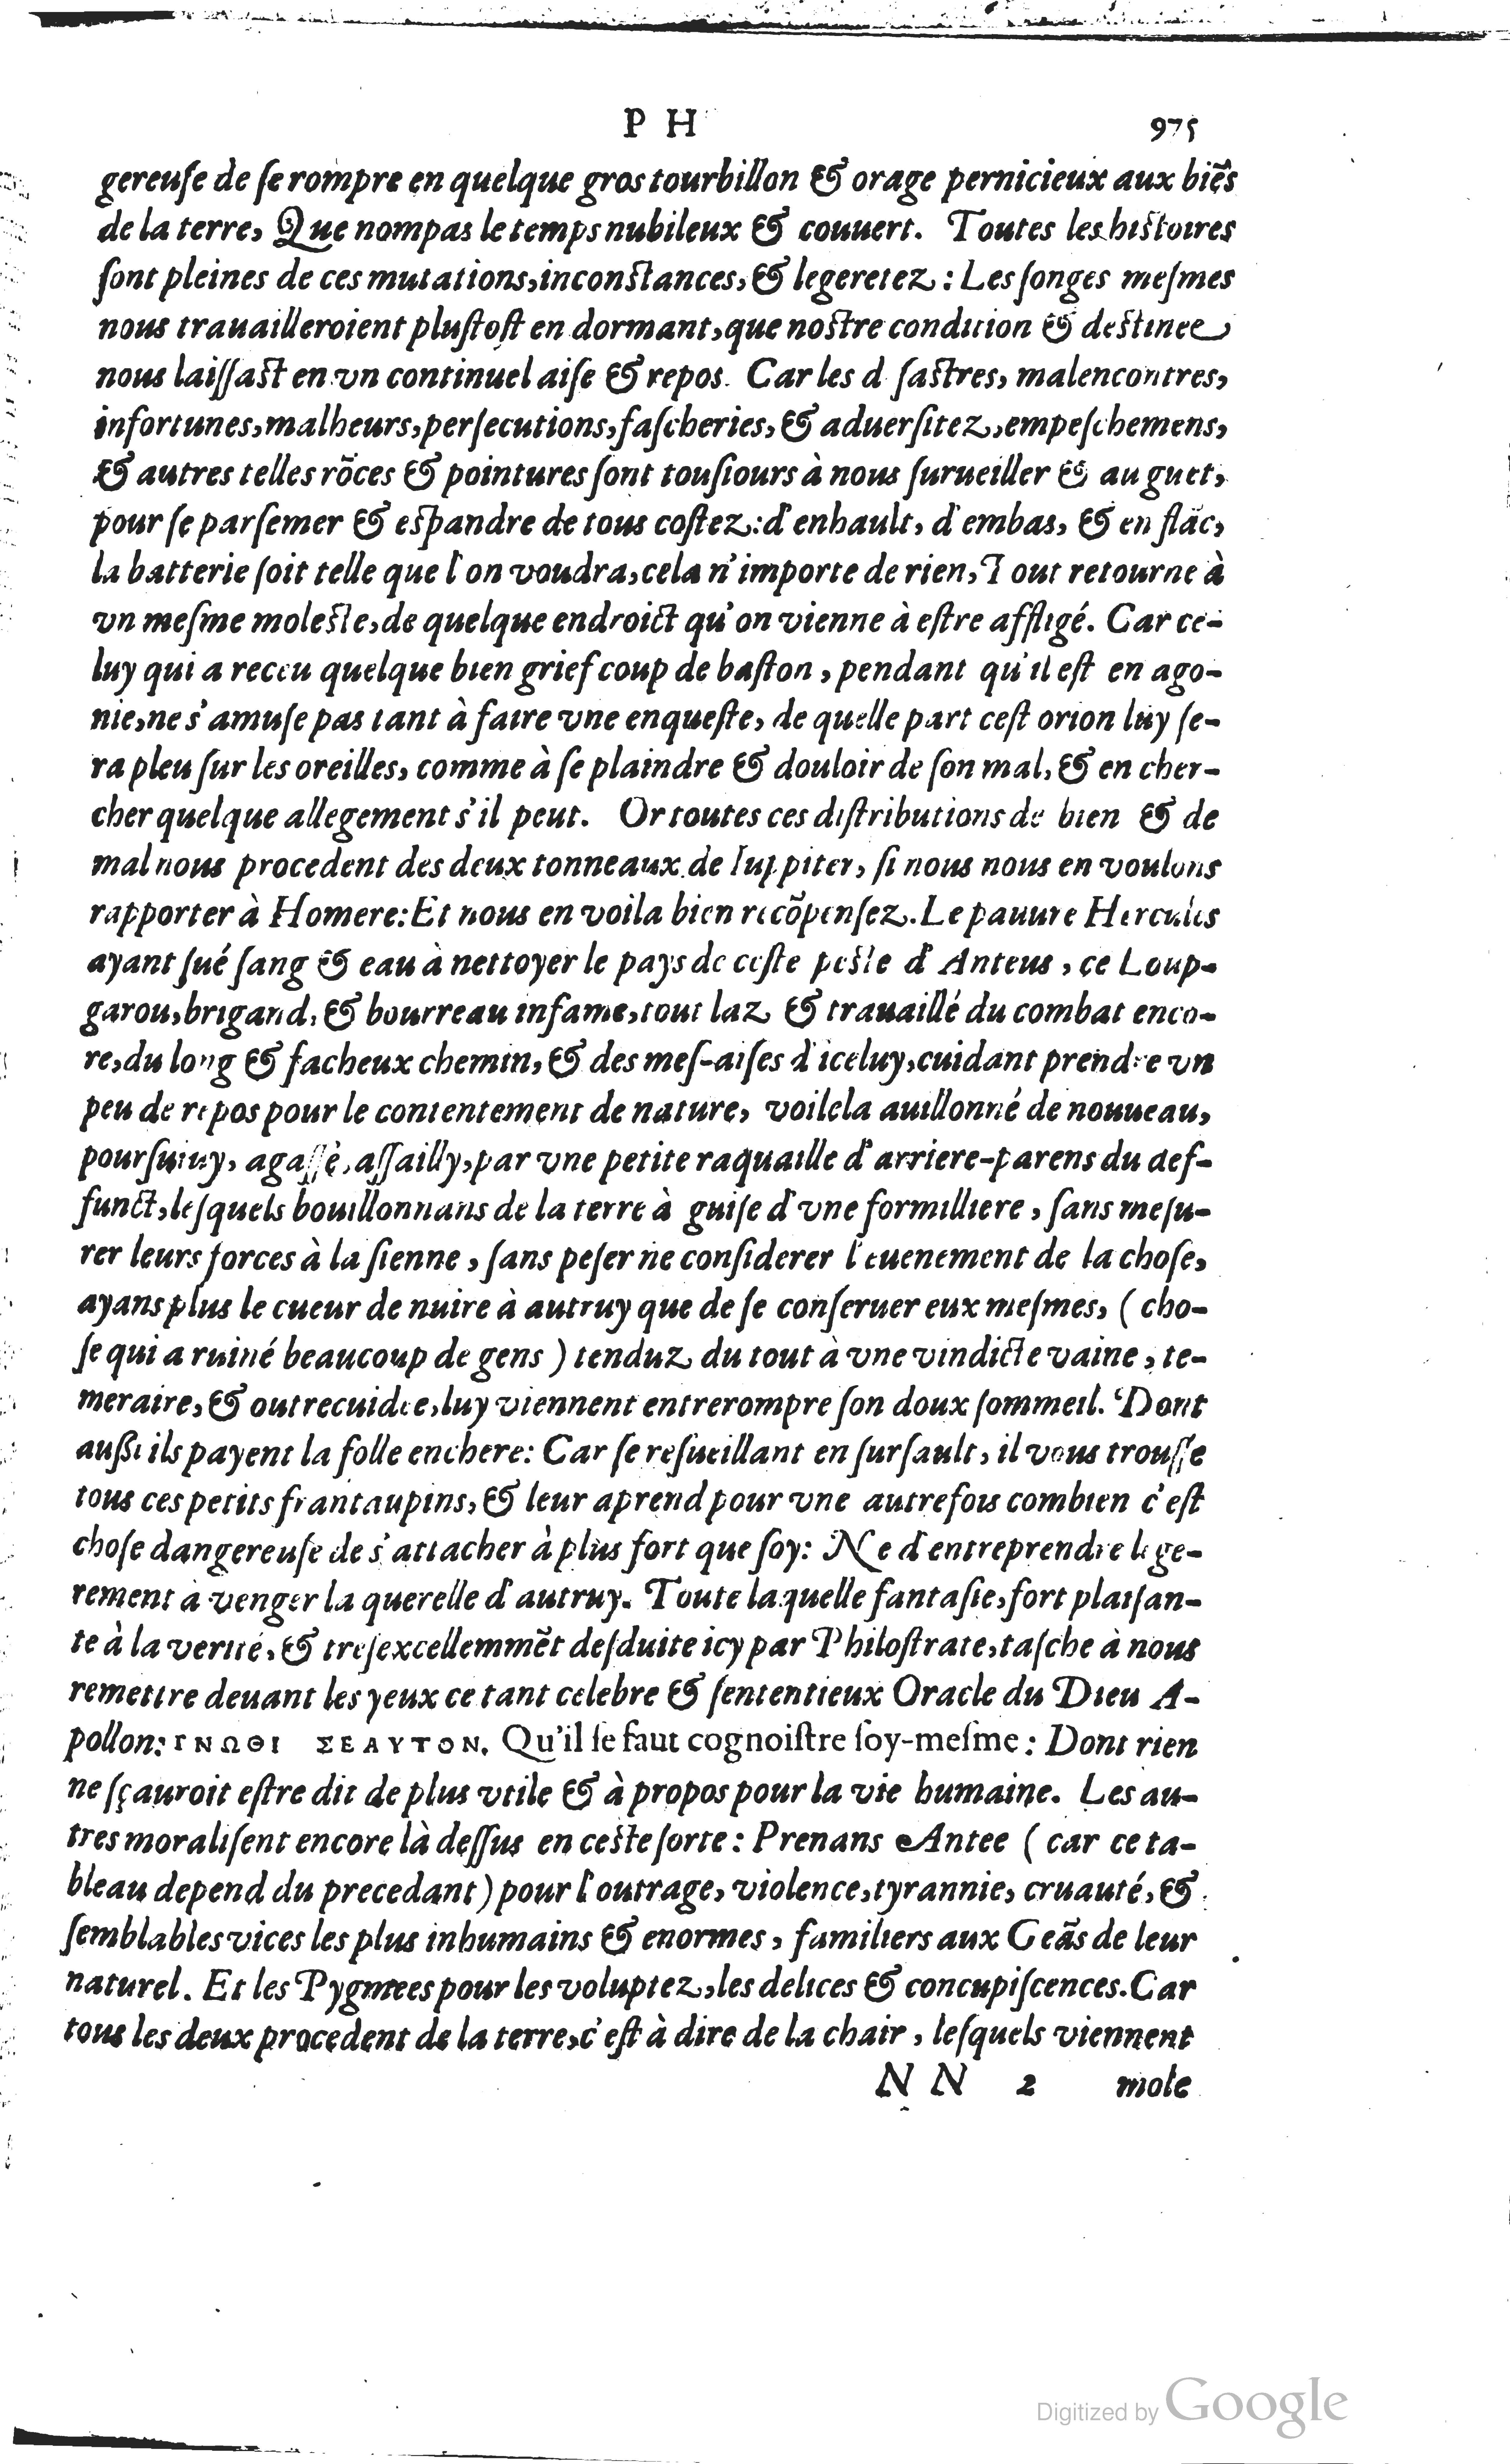 P H 975
gereuſe de ſe rompre en quelque gros tourbillon & orage pernicieux aux biẽs
de la terre, Que nompas le temps nubileux & couuert. Toutes les hiſtoires
ſont pleines de ces mutations, inconſtances, & legeretez: Les ſonges meſmes
nous trauailleroient pluſtoſt en dormant, que noſtre condition & deſtinee
nous laiſſaſt en vn continuel aiſe & repos. Car les d ſaſtres, malencontres,
infortunes, malheurs, perſecutions, faſcheries, & aduerſitez, empeſchemens,
& autres telles rõces & pointures ſont touſiours à nous ſurueiller & au guet,
pour ſe parſemer & eſpandre de tous coſtez: d'enhault, d'embas, & en flãc,
la batterie ſoit telle que l'on voudra, cela n'importe de rien, Tout retourne à
vn meſme moleſte, de quelque endroict qu'on vienne à eſtre affligé. Car ce-
luy qui a receu quelque bien grief coup de baſton, pendant qu'il eſt en ago-
nie, ne s'amuſe pas tant à faire vne enqueſte, de quelle part ceſt orion luy ſe-
ra pleu ſur les oreilles, comme à ſe plaindre & douloir de ſon mal, & en cher-
cher quelque allegement s'il peut. Or toutes ces diſtributions de bien & de
mal nous procedent des deux tonneaux de Iuppiter, ſi nous nous en voulons
rapporter à Homere: Et nous en voila bien recõpenſez. Le pauure Hercules
ayant ſué ſang & eau à nettoyer le pays de ceſte peſte d'Anteus, ce Loup-
garou, brigand, & bourreau infame, tout laz & trauaillé du combat enco-
re, du long & facheux chemin, & des meſ-aiſes d'iceluy, cuidant prendre vn
peu de repos pour le contentement de nature, voilela auillonné de nouueau,
pourſuiuy, agaſſé, aſſailly, par vne petite raquaille d'arriere-parens du def-
funct, leſquels bouillonnans de la terre à guiſe d'vne formilliere, ſans meſu-
rer leurs forces à la ſienne, ſans peſer ne conſiderer l'euenement de la choſe,
ayans plus le cueur de nuire à autruy que de ſe conſeruer eux meſmes, (cho-
ſe qui a ruiné beaucoup de gens) tenduz du tout à vne vindicte vaine, te-
meraire, & outrecuidee, luy viennent entrerompre ſon doux ſommeil. Dont
auſſi ils payent la folle enchere: Car ſe reſueillant en ſurſault, il vous trouſſe
tous ces petits frantaupins, & leur aprend pour vne autrefois combien c'eſt
choſe dangereuſe de s'attacher à plus fort que ſoy: Ne d'entreprendre lege-
rement à venger la querelle d'autruy. Toute laquelle fantaſie, fort plaiſan-
te à la verité, & treſexcellemmẽt deſduite icy par Philoſtrate, taſche à nous
remettre deuant les yeux ce tant celebre & ſententieux Oracle du Dieu A-
pollon: ΓΝΩΘΙ ΣΕΑΥΤΟΝ. Qu'il ſe faut cognoiſtre ſoy-meſme: Dont rien
ne ſçauroit eſtre dit de plus vtile & à propos pour la vie humaine. Les au-
tres moraliſent encore là deſſus en ceſte ſorte: Prenans Antee (car ce ta-
bleau depend du precedant) pour l'outrage, violence, tyrannie, cruauté, &
ſemblables vices les plus inhumains & enormes, familiers aux Geãs de leur
naturel. Et les Pygmees pour les voluptez, les delices & concupiſcences. Car
tous les deux procedent de la terre, c'eſt à dire de la chair, leſquels viennent
N N 2 mole
Digitized by Google